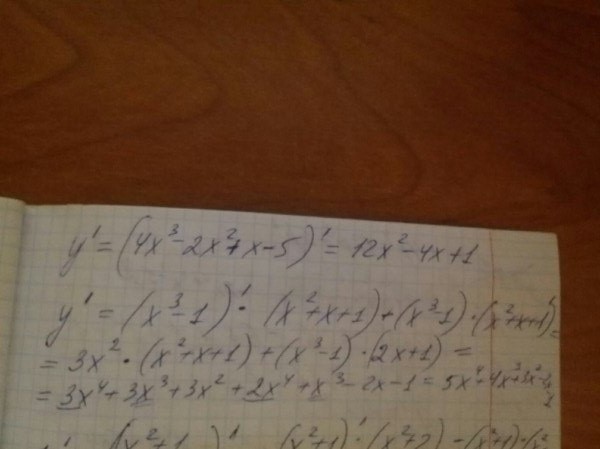 y' = (4x³-2x²+x-5)' = 12x²-4x+1
y' = (x³-1)' · (x²+x+1)+(x³-1)·(x²+x+1)' =
= 3x² · (x²+x+1)+(x³-1)·(2x+1) =
= 3x⁴+3x³+3x²+2x⁴+x³-2x-1 = 5x⁴+4x³+3x²-2x-1
(x²+1)' (x²+1)'·(x²+2)-(x²+1)·(x²